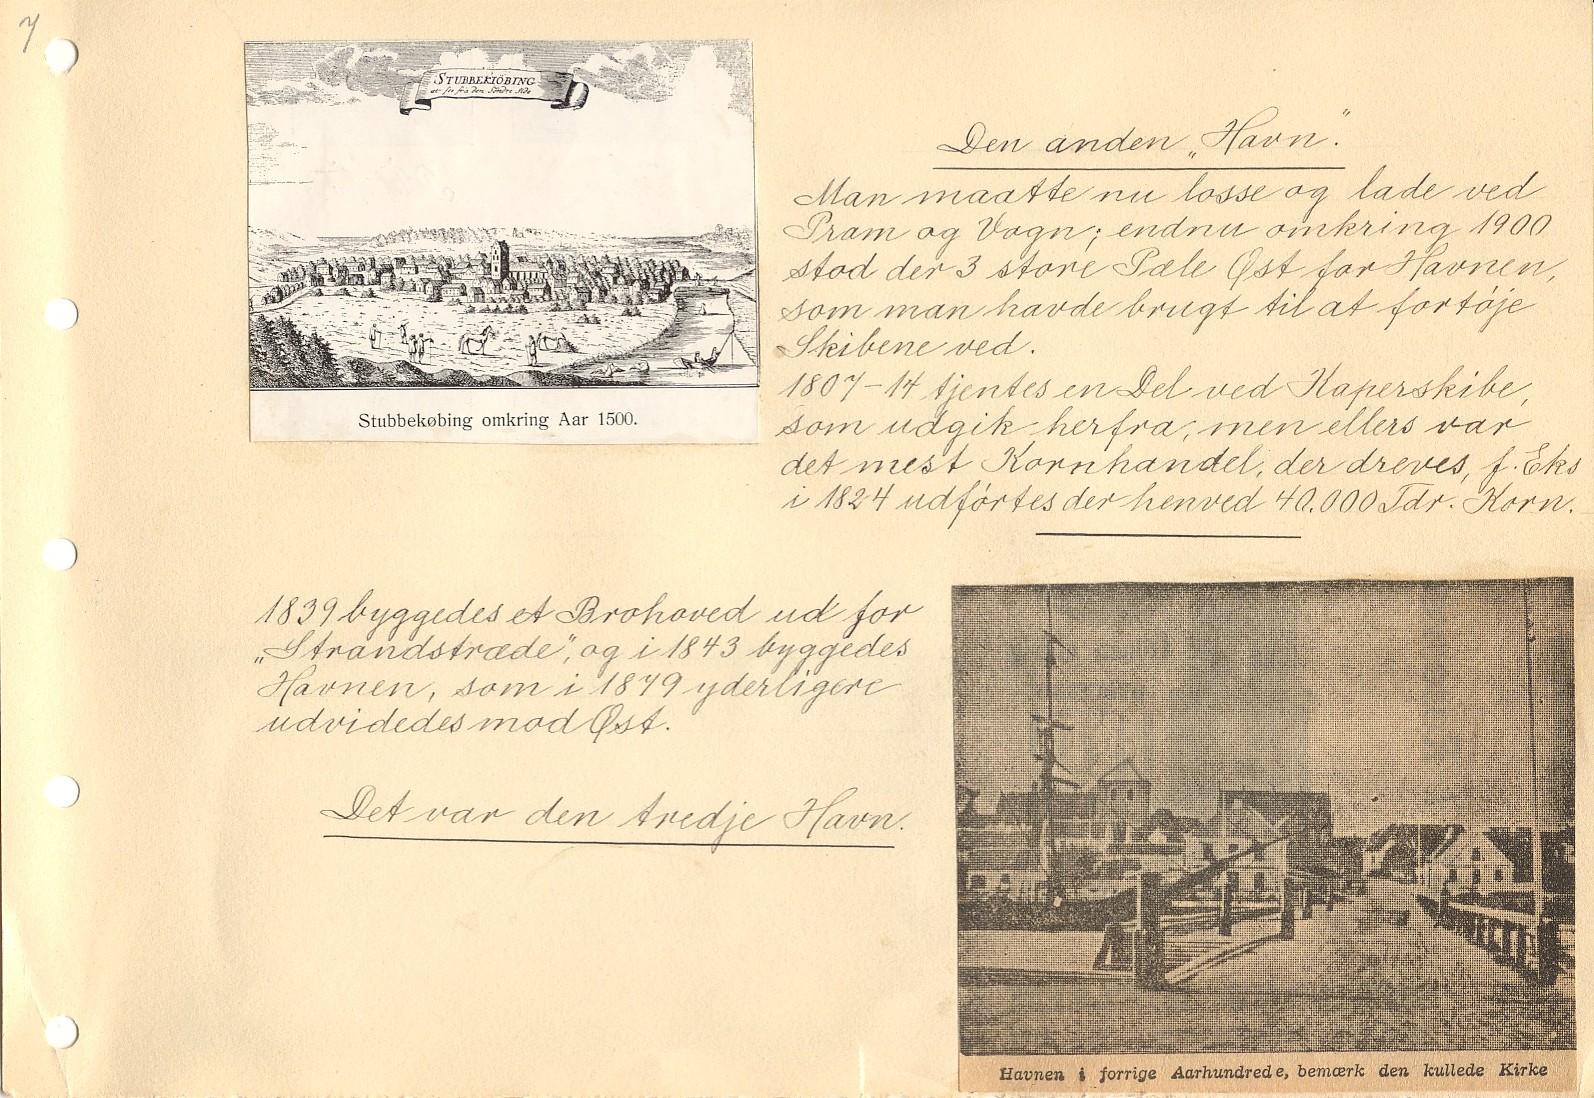 7
STUBBEKIÖBING
at see fra den Söndre Side
Stubbekøbing omkring Aar 1500.
Den anden „Havn".
Man maatte nu losse og lade ved
Pram og Vogn; endnu omkring 1900
stod der 3 store Pæle Øst for Havnen,
som man havde brugt til at fortøje
Skibene ved.
1807-14 tjentes en Del ved Kaperskibe,
som udgik herfra, men ellers var
det mest Kornhandel, der dreves, f. Eks
i 1824 udførtes der henved 40.000 Tdr. Korn.
1839 byggedes et Brohoved ud for
„Strandstræde", og i 1843 byggedes
Havnen, som i 1879 yderligere
udvidedes mod Øst.
Det var den tredje Havn.
Havnen i forrige Aarhundrede, bemærk den kullede Kirke